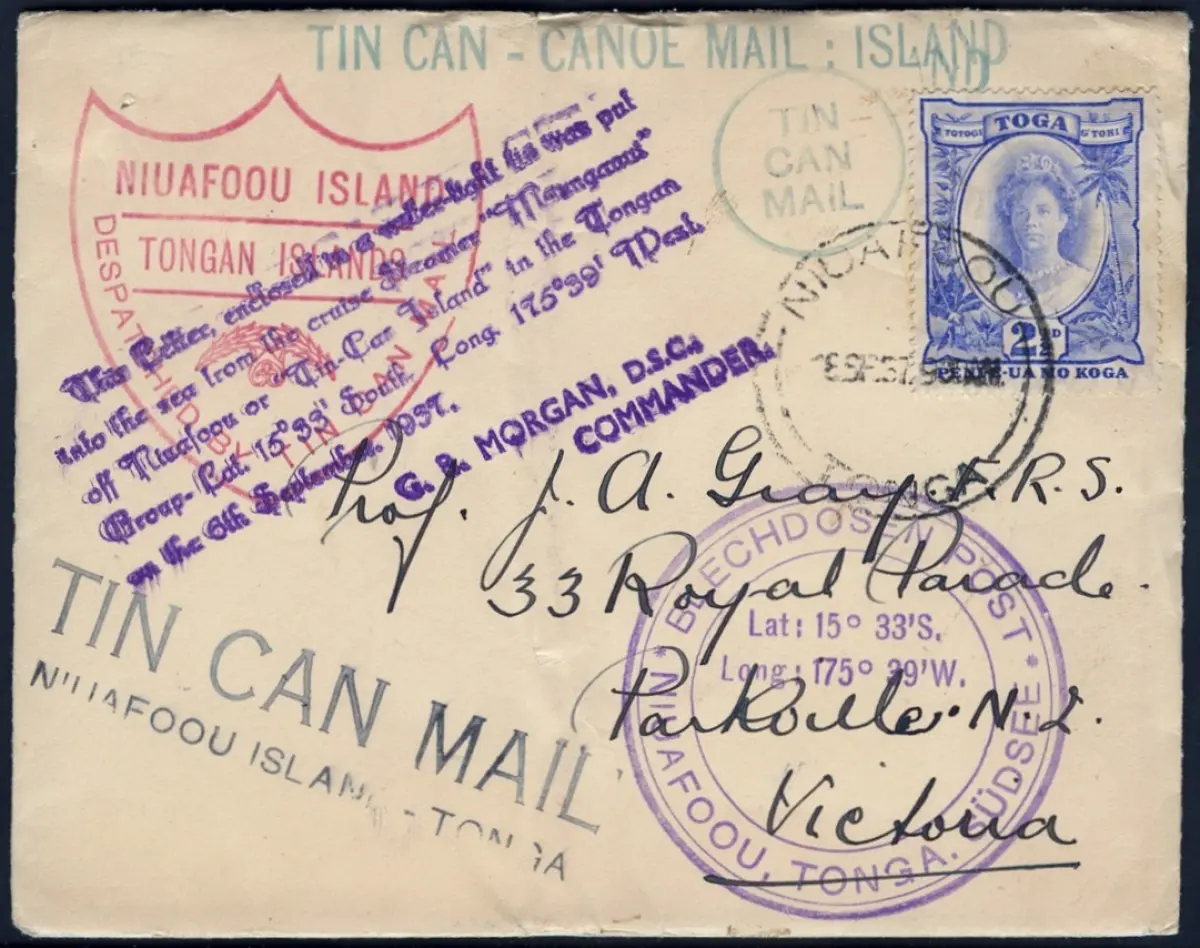 TIN CAN - CANOE MAIL : ISLAND
ND
TIN
CAN
MAIL
TOTOGI TOGA G'TOHI
2½D
PENI E-UA MO KOGA
NIUAFOOU
TONGA
NIUAFOOU ISLAND
TONGAN ISLANDS
DESPATCHED BY TIN CAN MAIL
This Letter, enclosed in a water-tight tin was put
into the sea from the cruise steamer "Maunganui"
off Niuafoou or "Tin-Can Island" in the Tongan
Group- Lat. 15°33' South, Long. 175°39' West.
on the 6th September, 1937.
G. B. MORGAN, D.S.C.,
COMMANDER.
Prof. J. A. Gray. F.R.S.
33 Royal Parade.
Parkville. N.2.
Victoria
TIN CAN MAIL
NIUAFOOU ISLAND - TONGA
* BLECHDOSEN POST *
Lat: 15° 33'S.
Long: 175° 39'W.
NIUAFOOU, TONGA, SÜDSEE